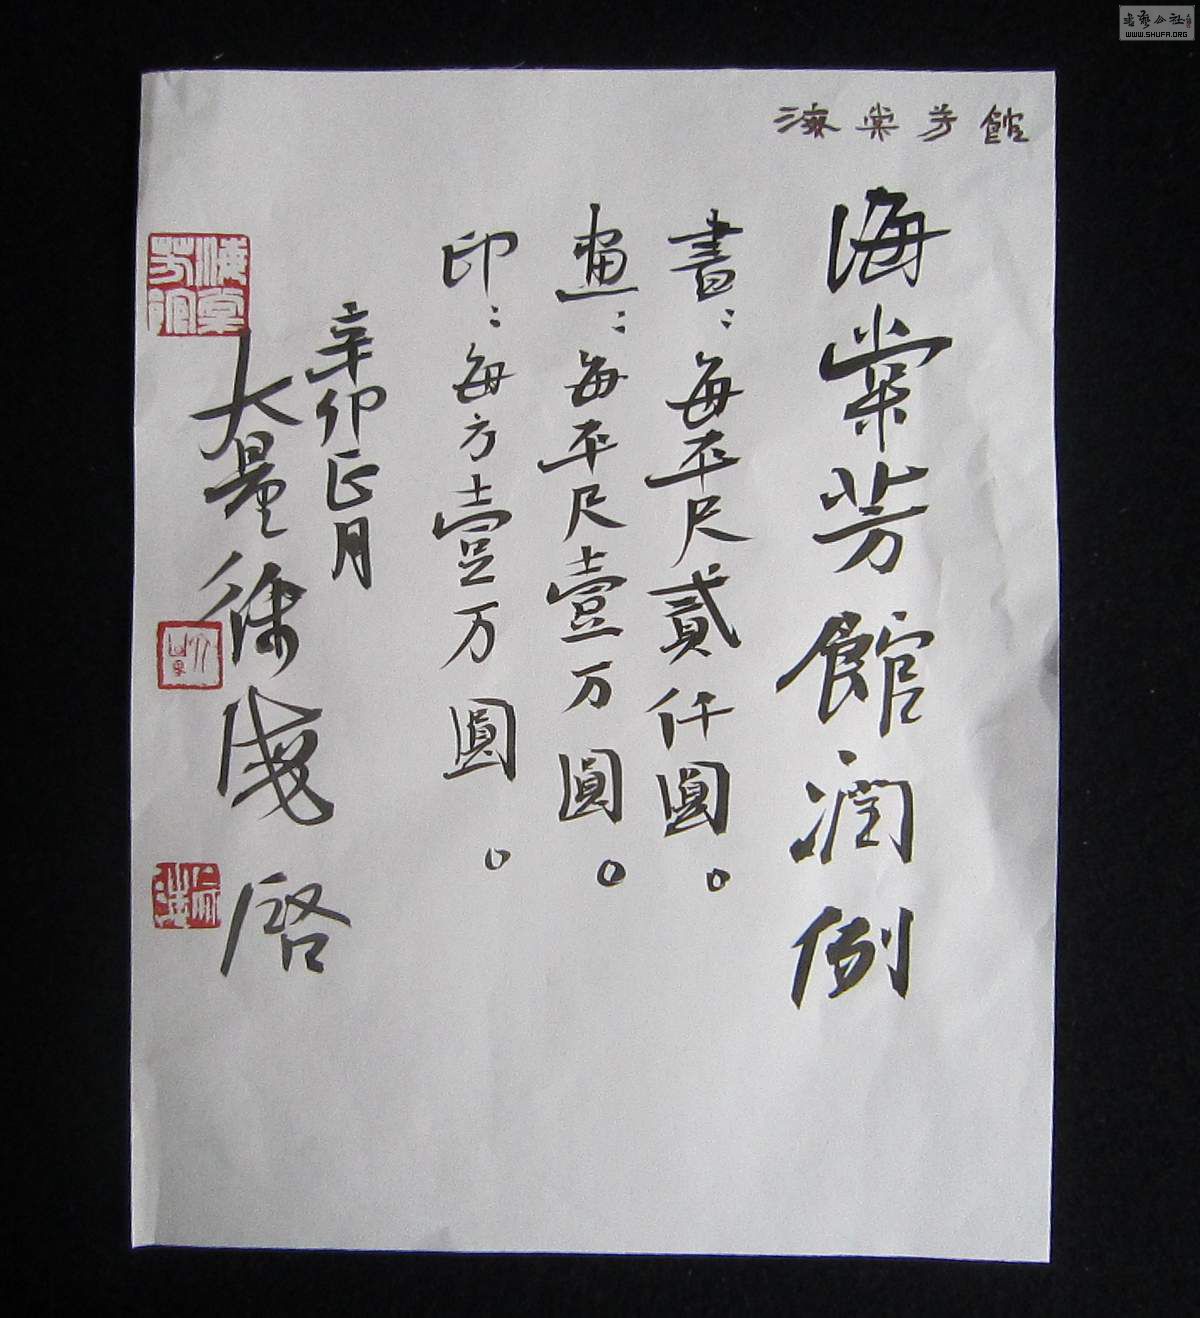 海棠芳館
海棠芳館润例
書：每平尺貳仟圓。
畫：每平尺壹万圓。
印：每方壹万圓。
辛卯正月
大量徐
啓
海棠芳館
WWW.SHUFA.ORG